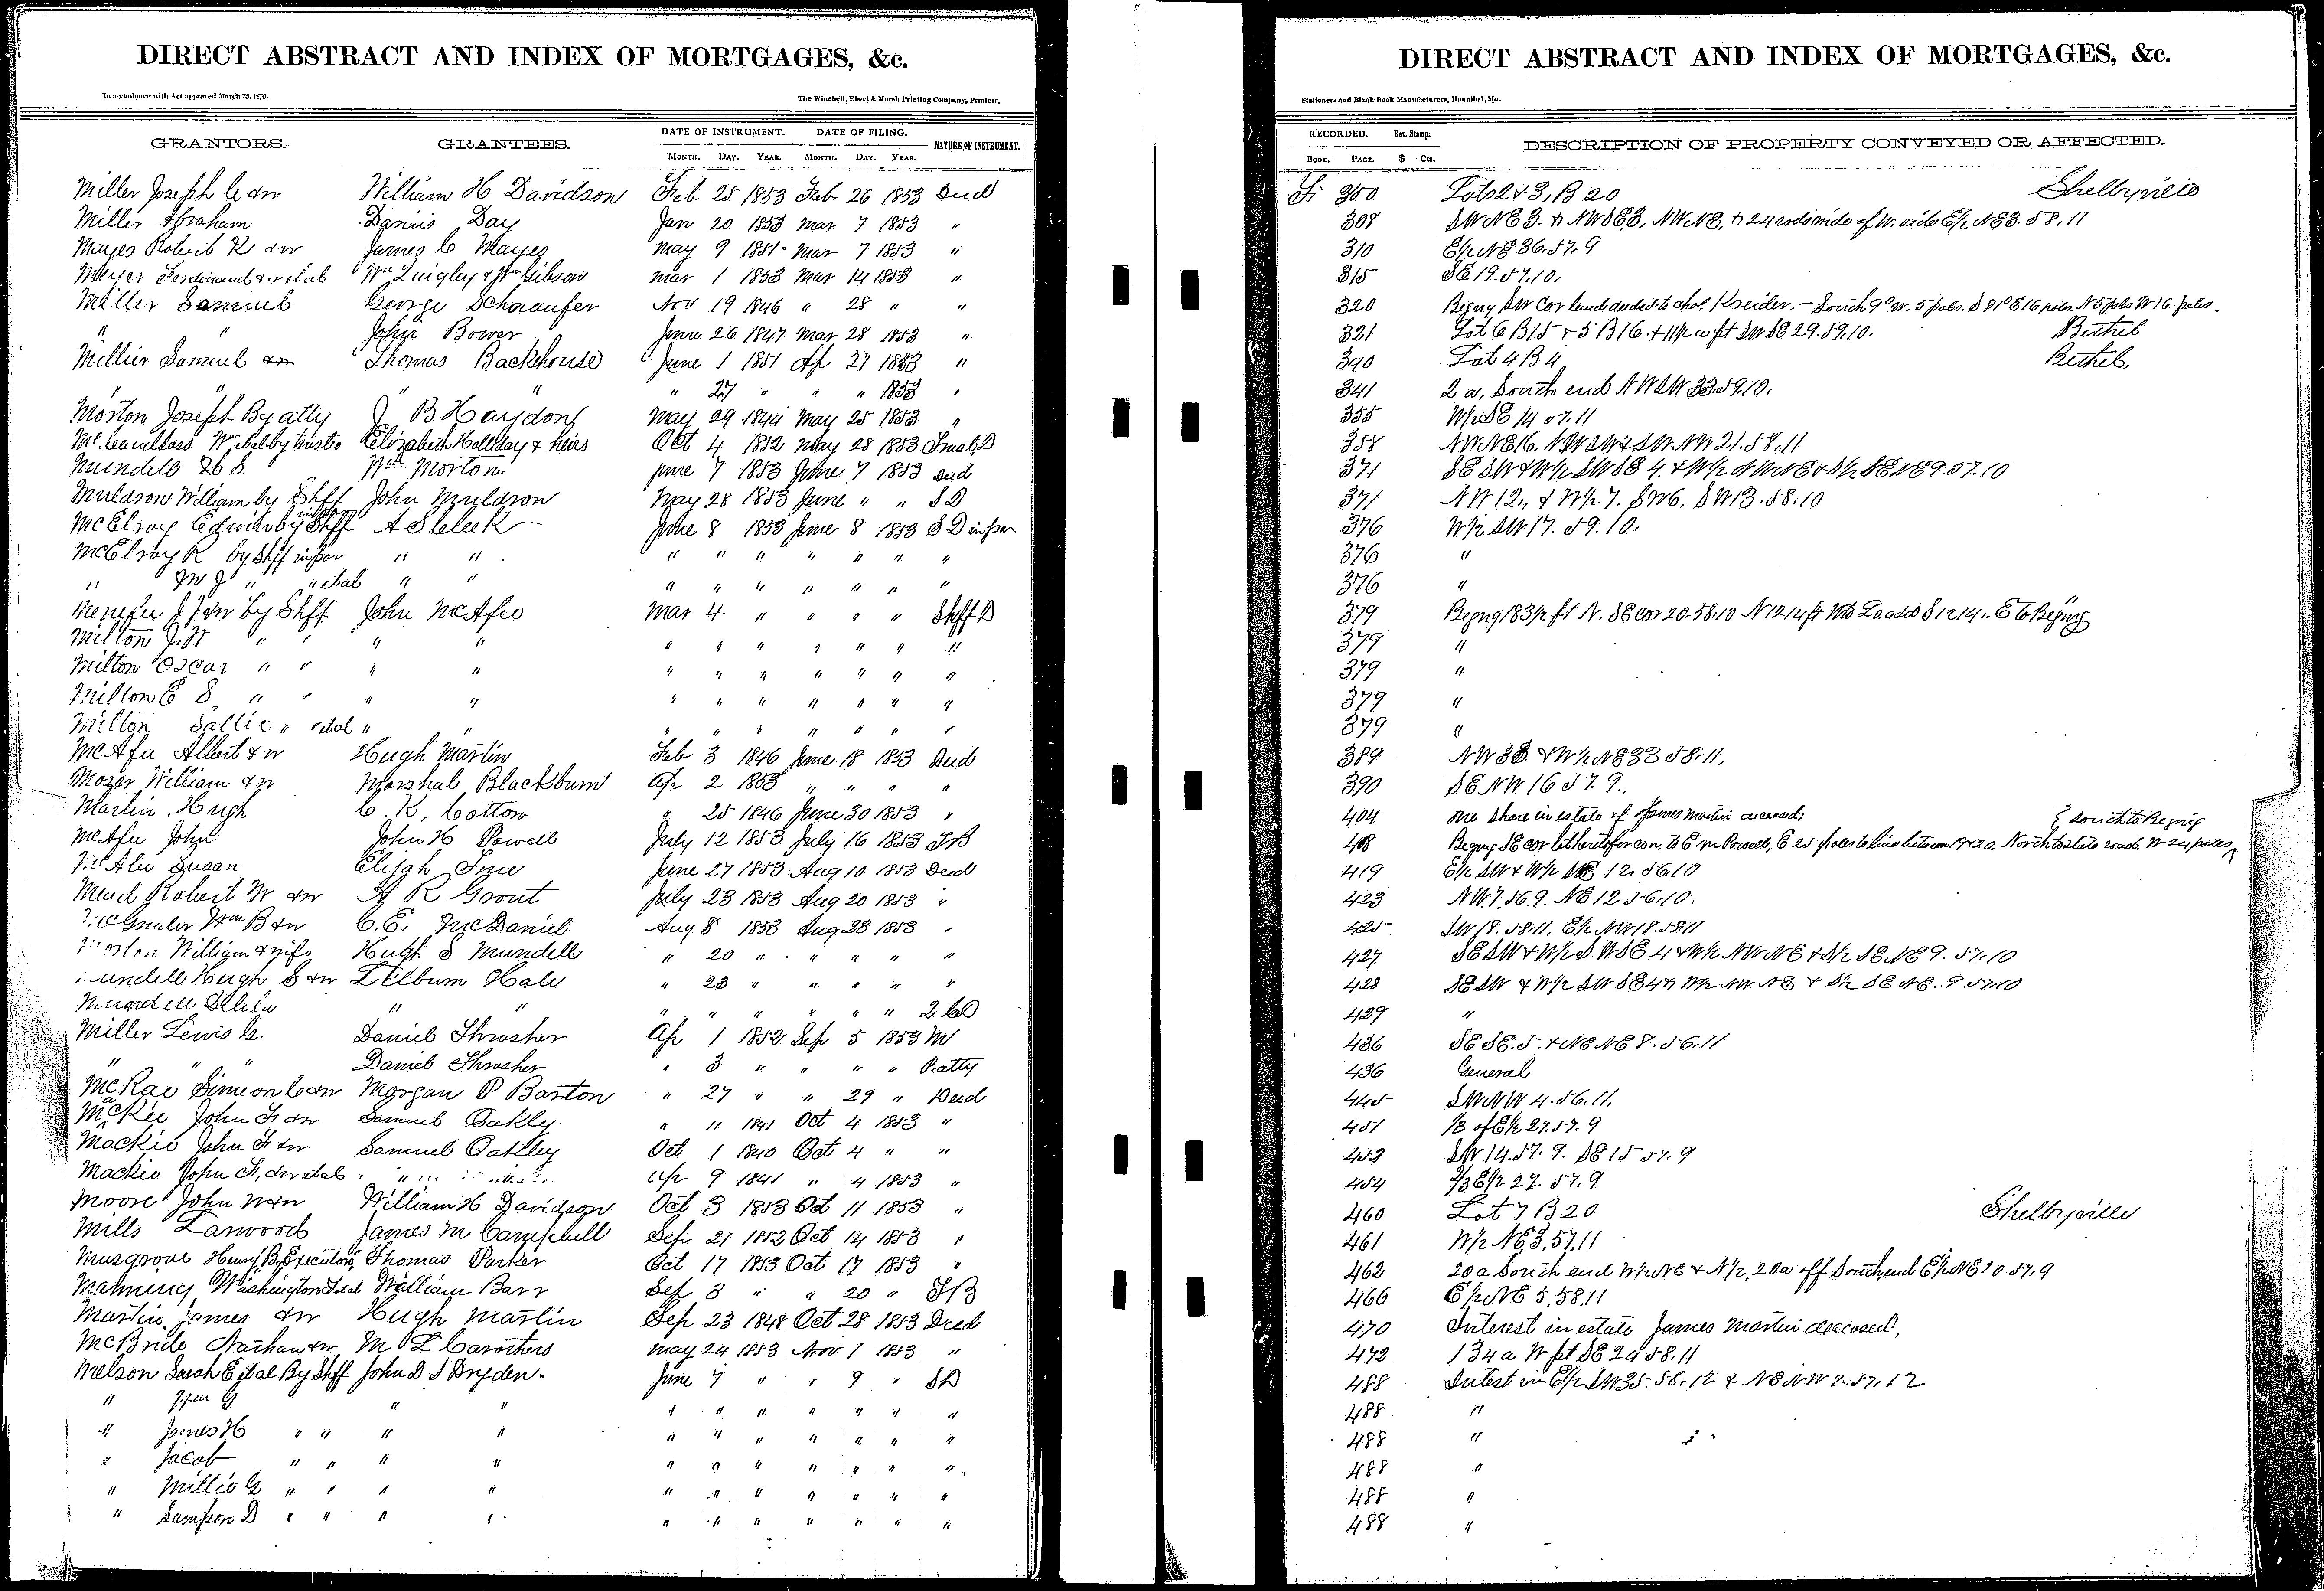 DIRECT ABSTRACT AND INDEX OF MORTGAGES, &c.
In accordance with Act approved March 25, 1870. The Winchell, Ebert & Marsh Printing Company, Printers,
GRANTORS. GRANTEES. DATE OF INSTRUMENT. DATE OF FILING. NATURE OF INSTRUMENT.
MONTH. DAY. YEAR. MONTH. DAY. YEAR.
Miller Joseph C & w William H Davidson Feb 25 1853 Feb 26 1853 Deed
Miller Abraham Darius Day Jan 20 1853 Mar 7 1853 "
Mayes Robert K & w James C Mayes May 9 1851 Mar 7 1853 "
Mayer Ferdinand & w et al Wm Quigley & Wm Gibson Mar 1 1853 Mar 14 1853 "
Miller Samuel George Schaaufer Nov 19 1846 " 28 " "
" " John Bower June 26 1847 Mar 28 1853 "
Millier Samuel & w Thomas Backhouse June 1 1851 Ap 27 1853 "
" " " " 27 " " " 1853 "
Morton Joseph By atty J B Haydon May 29 1844 May 25 1853 "
Wm et al by trustee Elizabeth Holliday & heirs Oct 4 1852 May 28 1853 Trust D
Mundell H S Wm Morton June 7 1853 June 7 1853 Deed
Muldrow William by Shff John Muldrow May 28 1853 June " " S D
McElroy Edwin by Shff in par A S Cleek June 8 1853 June 8 1853 S D in par
McElroy R by Shff in par " " " " " " " " "
" M J " " et al " " " " " " " " "
Menefee J J & w by Shff John McAfee Mar 4 " " " " Shff D
Milton J. W " " " " " " " " " " "
Milton Oscar " " " " " " " " " " "
Milton E S " " " " " " " " " " "
Milton Sallie " et al " " " " " " " " "
McAfee Albert & w Hugh Martin Feb 3 1846 June 18 1853 Deed
Mozer William & w Marshal Blackburn Ap 2 1853 " " " "
Martin, Hugh C. K. Cotton " 25 1846 June 30 1853 "
McAfee John John H Powell July 12 1853 July 16 1853 T B
McAtee Susan Elijah True June 27 1853 Aug 10 1853 Deed
Robert W & w A R Grout July 23 1853 Aug 20 1853 "
Wm B & w C. E. McDaniel Aug 8 1853 Aug 23 1853 "
Morton William & wife Hugh S Mundell " 20 " " " " "
Mundell Hugh S & w Lilburn Hale " 23 " " " " "
Mundell " " " " " " " " 2 C D
Miller Lewis G. Daniel Thrasher Ap 1 1852 Sep 5 1853 M
" " " Daniel Thrasher " 3 " " " " P. atty
McRae Simeon C & w Morgan P Barton " 27 " " 29 " Deed
McKie John F & w Samuel Oakly " 11 1841 Oct 4 1853 "
Mackie John F & w Samuel Oakley Oct 1 1840 Oct 4 " "
Mackie John F, & w et al " " Ap 9 1841 " 4 1853 "
Moore John W & w William H Davidson Oct 3 1853 Oct 11 1853 "
Mills Larwood James M Campbell Sep 21 1852 Oct 14 1853 "
Musgrove Henry By Executors Thomas Parker Oct 17 1853 Oct 17 1853 "
Manning Washington et al William Barr Sep 3 " " 20 " T B
Martin, James & w Hugh Martin Sep 23 1848 Oct 28 1853 Deed
McBride Nathan & w M L Carothers May 24 1853 Nov 1 1853 "
Melson Sarah E et al By Shff John D S Dryden June 7 " " 9 " S D
" G " " " " " " " " "
" James H " " " " " " " " " " "
" Jacob " " " " " " " " " " "
" Millie G " " " " " " " " " " "
" Sampson D " " " " " " " " " " "
DIRECT ABSTRACT AND INDEX OF MORTGAGES, &c.
Stationers and Blank Book Manufacturers, Hannibal, Mo.
RECORDED. Rev. Stamp. DESCRIPTION OF PROPERTY CONVEYED OR AFFECTED.
BOOK. PAGE. $ Cts.
300 Lots 2 & 3, B 20 Shelbyville
308 SW NE 3. & NW SE 3, NW NE, & 24 rods wide of W. side E½ NE 3. 58. 11
310 E½ NE 36. 57. 9
315 SE 19. 57. 10.
320 Begng SW Cor land deeded to Chas. Kreider, - South 9° W. 5 poles. S 81° E 16 poles. N 5 poles W 16 poles.
321 Lot 6 B 15 & 5 B 16. & 11½ a pt SW SE 29. 59. 10. Bethel
340 Lot 4 B 4 Bethel.
341 2 a, South end NW SW 33. 59. 10.
355 W½ SE 14 57. 11
358 NW NE 16. NW SW & SW NW 21. 58. 11
371 SE SW & W½ SW SE 4. & W½ NW NE & S½ SE NE 9. 57. 10
371 NW 12., & W½ 7. SW 6. SW 13. 58. 10
376 W½ SW 17. 59. 10.
376 "
376 "
379 Begng 183½ ft N. SE cor 20. 58. 10 N 12 14 ft W to S 12 14 " E to Begng
379 "
379 "
379 "
379 "
389 NW 33 & W½ NE 33 58. 11.
390 SE NW 16 57. 9.
404 One share in estate of James Martin deceased;
408 Begng SE cor lot heretofore con. to E M Powell, E 25 poles to line between 19 & 20. North to state road, W 24 poles { South to Begng
419 E½ SW & W½ SE 12. 56. 10
423 NW. 7. 56. 9. NE 12. 56. 10.
425 SW 18. 58. 11. E½ NW 18. 58. 11
427 SE SW & W½ SW SE 4 & W½ NW NE & S½ SE NE 9. 57. 10
428 SE SW & W½ SW SE 4 & W½ NW NE & S½ SE NE. 9. 57. 10
429 "
436 SE SE. 5. & NE NE 8. 56. 11
436 General
445 SW NW 4. 56. 11.
451 ⅓ of E½ 27. 57. 9
453 SW 14. 57. 9. SE 15 57. 9
454 ⅔ E½ 27. 57. 9
460 Lot 7 B 20 Shelbyville
461 W½ NE, 3, 57, 11
462 20 a South end W½ NE & N½, 20 a off South end E½ NE 20. 57. 9
466 E½ NE 5, 58, 11
470 Interest in estate James Martin deceased,
472 134 a W pt SE 24 58. 11
488 Intest in E½ SW 35. 58. 12 & NE NW 2. 57. 12
488 "
488 "
488 "
488 "
488 "